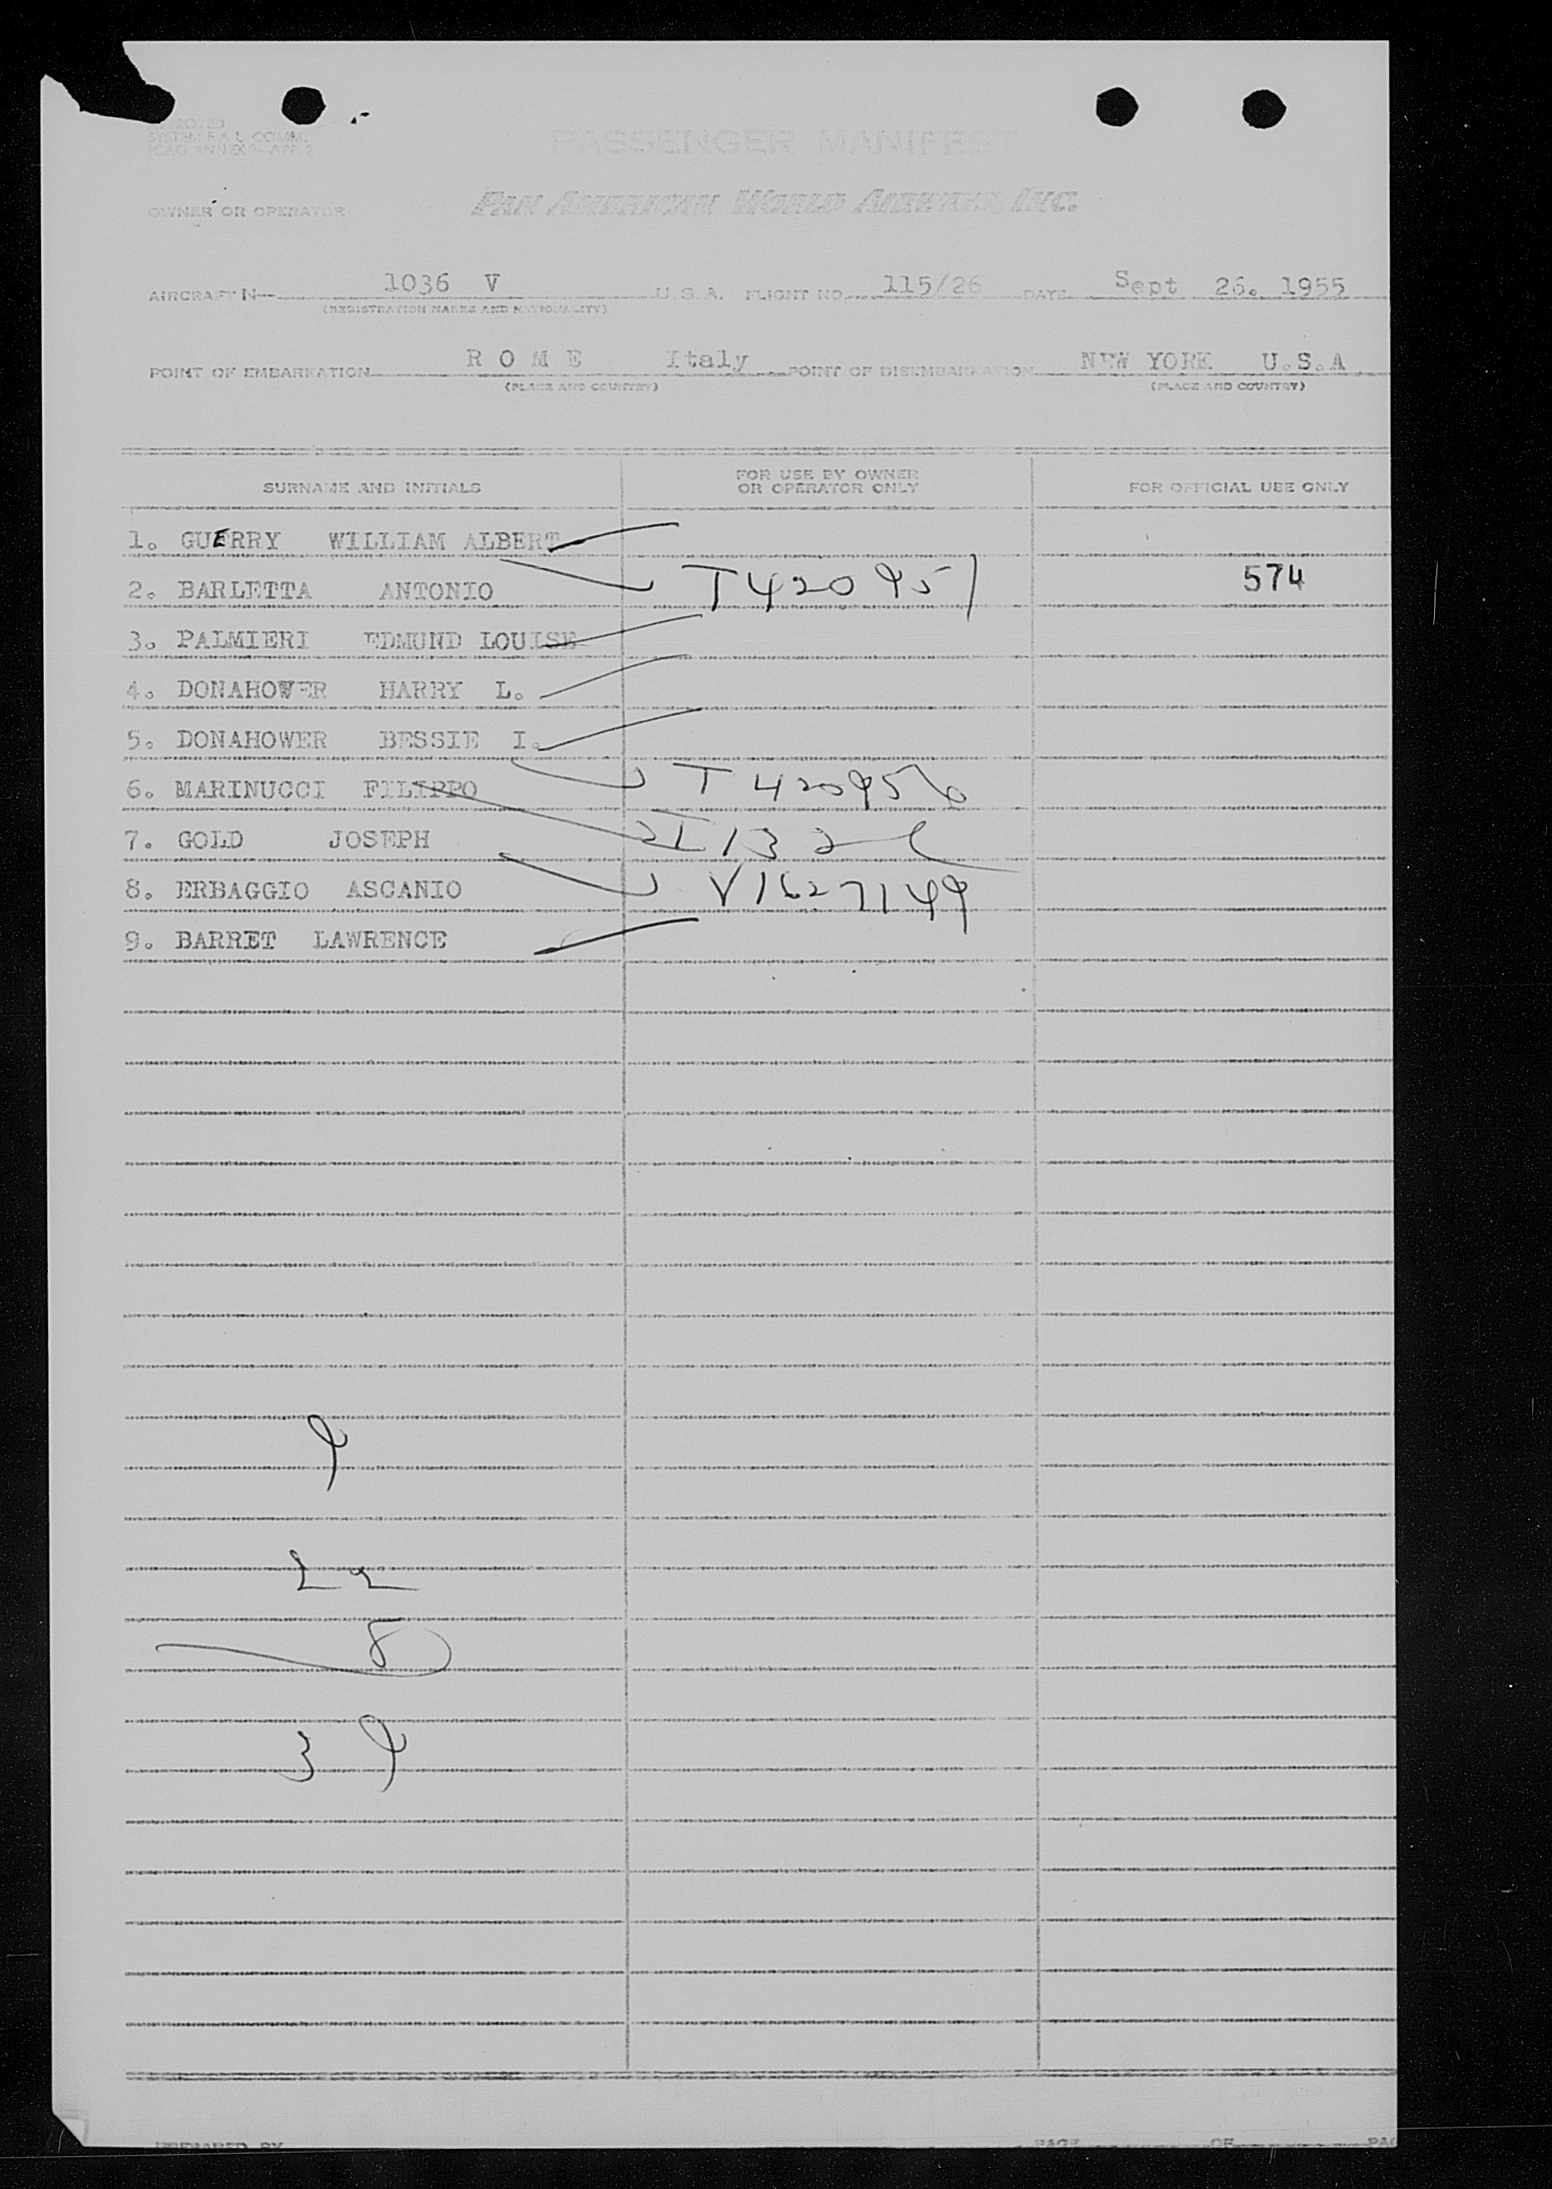 SYSTEM F.A.L. COMM.
ICAO ANNEX 9-APP. 2
PASSENGER MANIFEST
OWNER OR OPERATOR PAN AMERICAN WORLD AIRWAYS, INC.
AIRCRAFT N 1036 V U.S.A. FLIGHT NO. 115/26 DATE Sept 26. 1955
(REGISTRATION MARKS AND NATIONALITY)
POINT OF EMBARKATION R O M E Italy POINT OF DISEMBARKATION NEW YORK U.S.A
(PLACE AND COUNTRY) (PLACE AND COUNTRY)
SURNAME AND INITIALS FOR USE BY OWNER OR OPERATOR ONLY FOR OFFICIAL USE ONLY
1. GUERRY WILLIAM ALBERT
2. BARLETTA ANTONIO T420951 574
3. PALMIERI EDMUND LOUISE
4. DONAHOWER HARRY L.
5. DONAHOWER BESSIE I.
6. MARINUCCI FILIPPO T420956
7. GOLD JOSEPH
8. ERBAGGIO ASCANIO V1627149
9. BARRET LAWRENCE
9
22
8
39
PREPARED BY PAGE OF